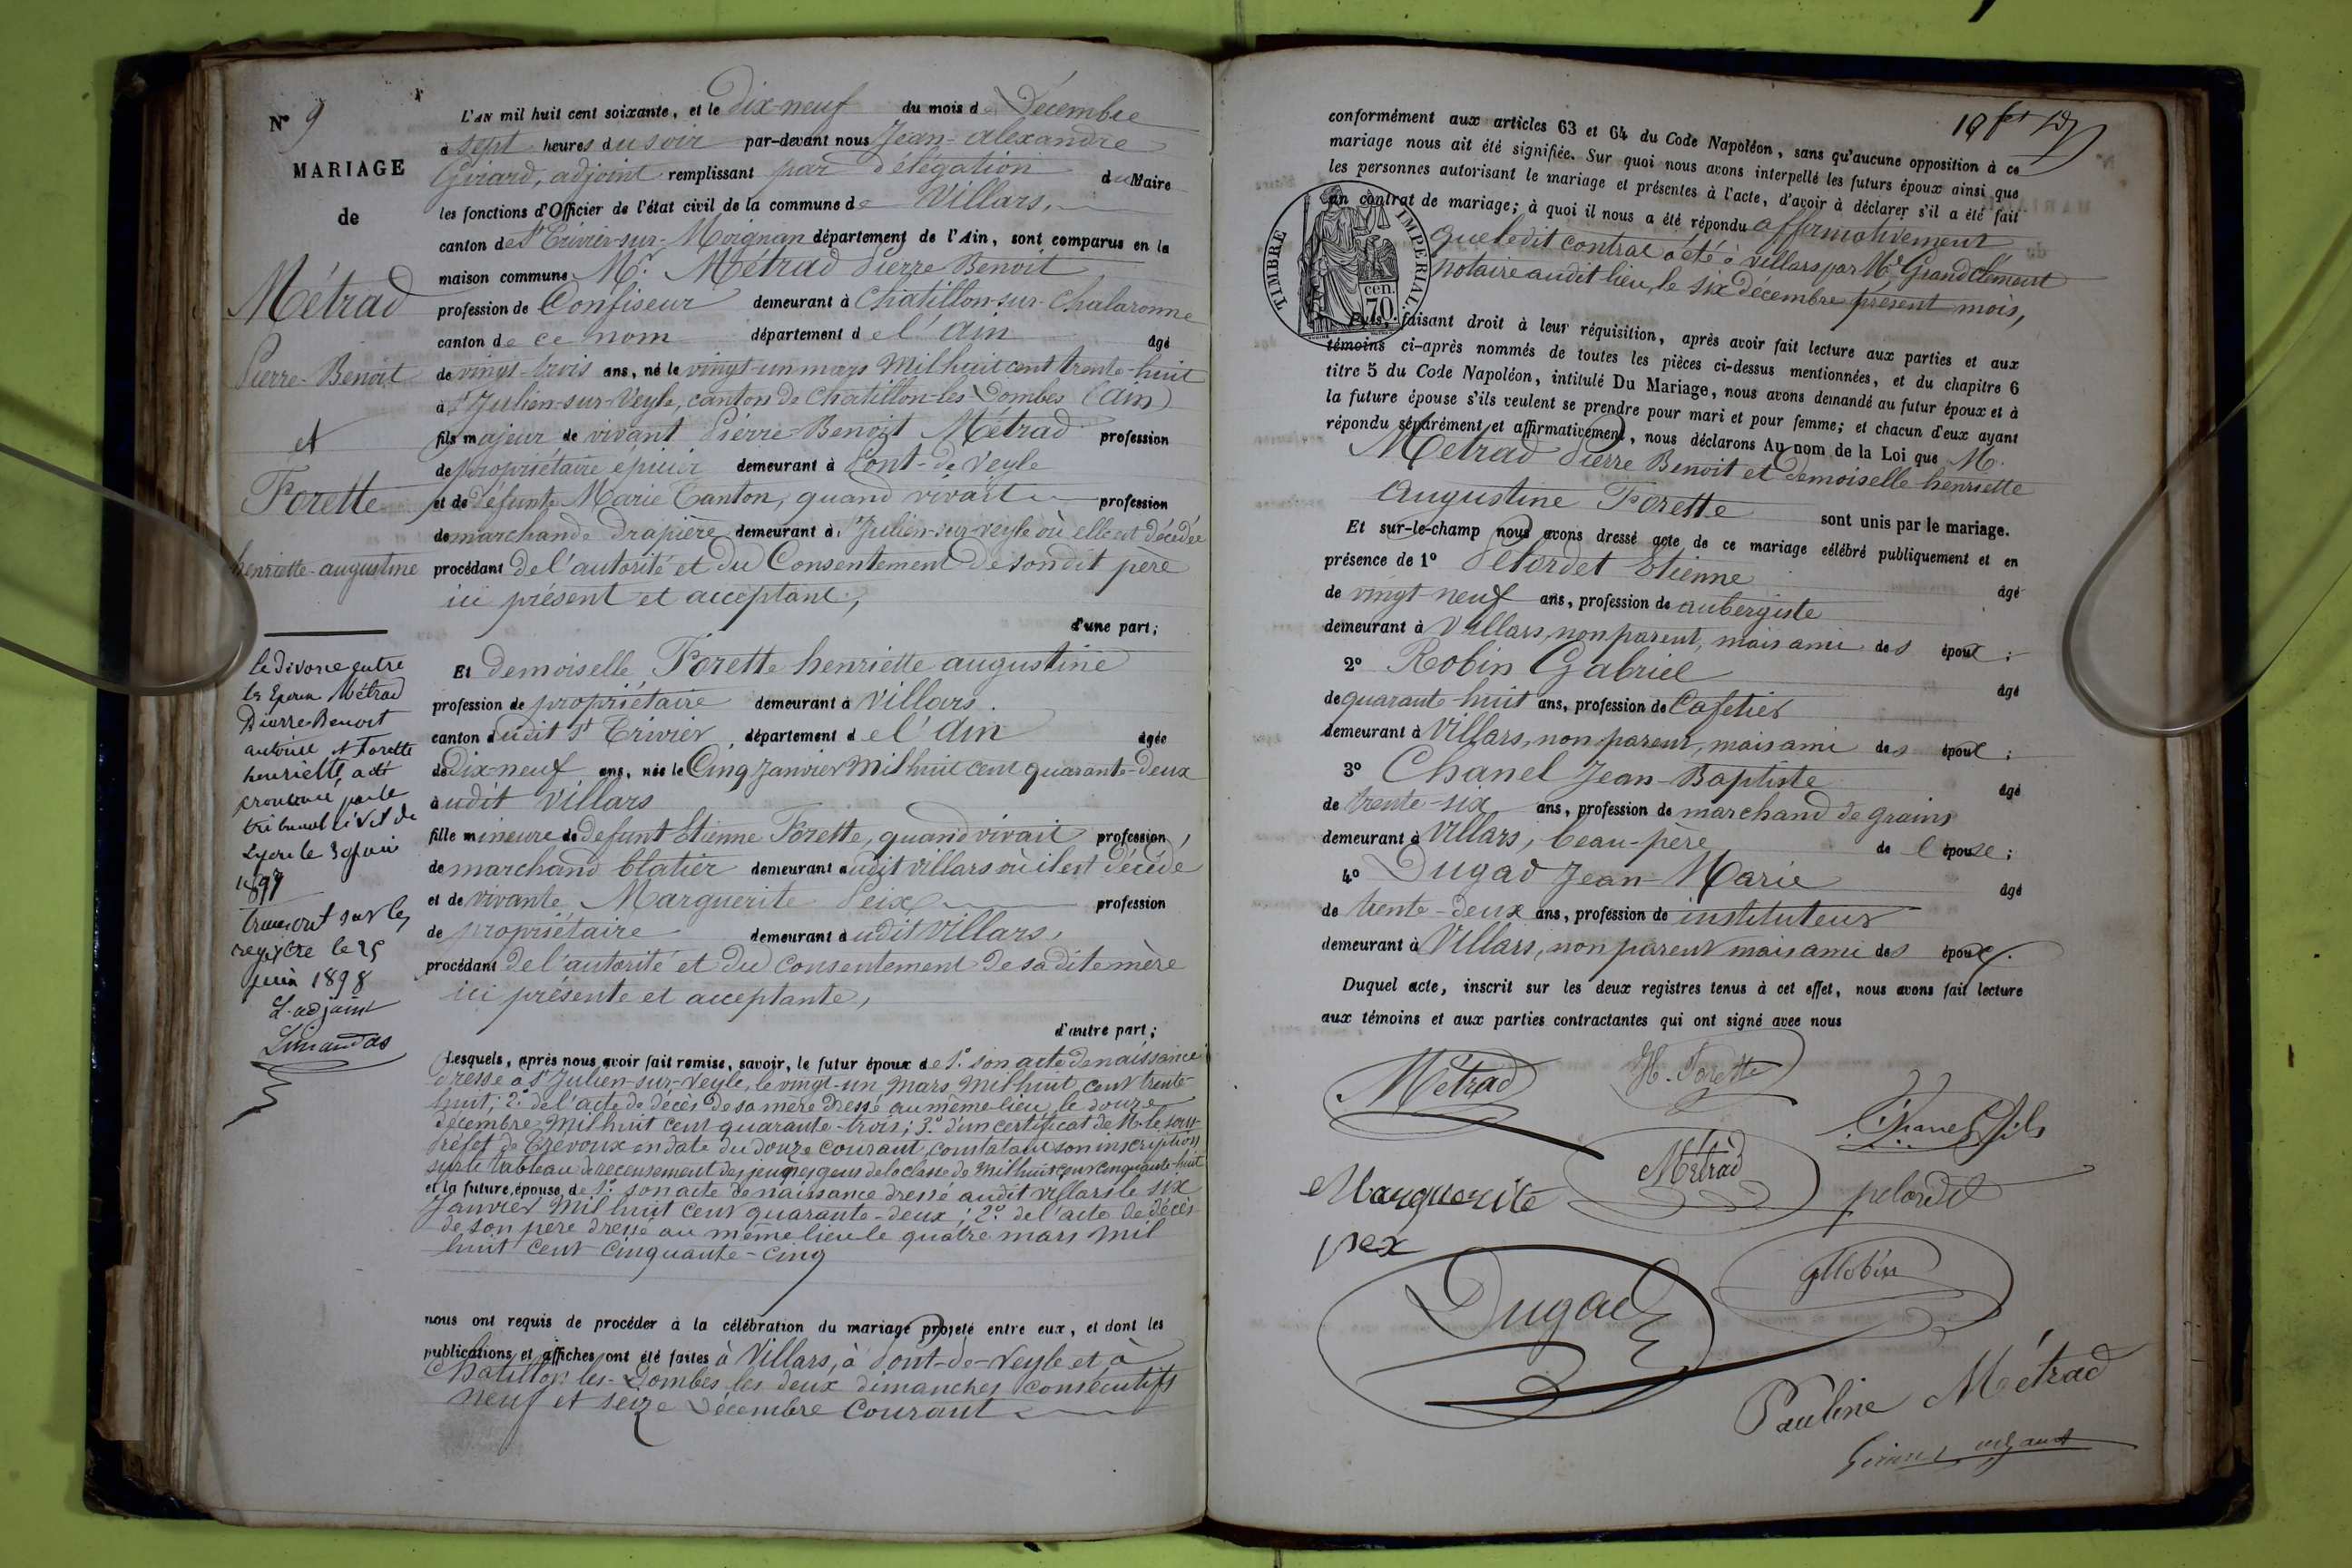 N° 9
MARIAGE
de
Métrad
Pierre-Benoit
et
Forette
henriette-augustine
le divorce entre
les Epoux Métrad
Pierre Benoit
antoine et Forette
henriette, a été
prononcé par le
tribunal civil de
Lyon le
1897
transcrit sur les
registre le 25
juin 1898
L'adjoint
L'AN mil huit cent soixante, et le dix-neuf du mois de Décembre
à sept heures du soir par-devant nous Jean-Alexandre
Girard, adjoint remplissant par délégation du Maire
les fonctions d'Officier de l'état civil de la commune de Villars,
canton de St Trivier-sur-Moignan département de l'Ain, sont comparus en la
maison commune Mr. Métrad Pierre Benoit
profession de Confiseur demeurant à Chatillon-sur-Chalaronne
canton de ce nom département de l'Ain âgé
de vingt-trois ans, né le vingt-un mars Mil huit cent trente-huit
à St Julien-sur-Veyle, canton de Chatillon-les-Dombes (Ain)
fils majeur de vivant Pierre-Benoit Métrad profession
de propriétaire épicier demeurant à Pont-de-Veyle
et de défunte Marie Canton, quand vivait profession
de marchande drapière demeurant à St Julien-sur-Veyle où elle est décédée
procédant de l'autorité et du Consentement de son dit père
ici présent et acceptant,
d'une part;
Et demoiselle Forette henriette augustine
profession de propriétaire demeurant à Villars.
canton dudit St Trivier département de l'Ain âgée
de Dix-neuf ans, née le Cinq Janvier Mil huit cent quarante-deux
audit Villars
fille mineure de defunt Etienne Forette, quand vivait profession
de marchand blatier demeurant audit Villars où il est décédé
et de vivante Marguerite Peix profession
de propriétaire demeurant audit Villars,
procédant de l'autorité et du consentement de sa dite mère
ici présente et acceptante,
d'autre part;
Lesquels, après nous avoir fait remise, savoir, le futur époux de 1.° son acte de naissance
dressé à St Julien-sur-Veyle, le vingt-un Mars Mil huit cent trente-
huit; 2.° de l'acte de décès de sa mère dressé au même lieu, le douze
décembre Mil huit cent quarante-trois; 3.° d'un certificat de Mr le sous-
Préfet de Trévoux en date du douze courant, constatant son inscription
sur le tableau de recensement des jeunes gens de la classe de Mil huit cent cinquante-huit
et la future épouse de 1.° son acte de naissance dressé audit Villars le six
Janvier Mil huit cent quarante-deux; 2.° de l'acte de décès
de son père dressé au même lieu le quatre mars mil
huit cent cinquante-cinq
nous ont requis de procéder à la célébration du mariage projeté entre eux, et dont les
publications et affiches ont été faites à Villars, à Pont-de-Veyle et à
Chatillon-les-Dombes les deux dimanches consécutifs
neuf et seize Décembre courant
conformément aux articles 63 et 64 du Code Napoléon, sans qu'aucune opposition à ce
mariage nous ait été signifiée. Sur quoi nous avons interpellé les futurs époux ainsi que
les personnes autorisant le mariage et présentes à l'acte, d'avoir à déclarer s'il a été fait
un contrat de mariage; à quoi il nous a été répondu affirmativement
que ledit contrat a été à Villars par Me Grandclément
notaire audit lieu, le six decembre présent mois,
TIMBRE IMPERIAL.
cen.
70.
Puis, faisant droit à leur réquisition, après avoir fait lecture aux parties et aux
témoins ci-après nommés de toutes les pièces ci-dessus mentionnées, et du chapitre 6
titre 5 du Code Napoléon, intitulé Du Mariage, nous avons demandé au futur époux et à
la future épouse s'ils veulent se prendre pour mari et pour femme; et chacun d'eux ayant
répondu séparément et affirmativement, nous déclarons Au nom de la Loi que M.
Métrad Pierre Benoit et demoiselle henriette
Augustine Forette sont unis par le mariage.
Et sur-le-champ nous avons dressé acte de ce mariage célébré publiquement et en
présence de 1° Pelordet Etienne âgé
de vingt neuf ans, profession de aubergiste
demeurant à Villars, non parent, mais ami des époux;
2° Robin Gabriel âgé
de quarante-huit ans, profession de Cafetier
demeurant à Villars, non parent, mais ami des époux;
3° Chanel Jean-Baptiste âgé
de trente-six ans, profession de marchand de grains
demeurant à Villars, beau-père de l'épouse;
4° Dugad Jean-Marie âgé
de trente-deux ans, profession de instituteur
demeurant à Villars, non parent mais ami des époux.
Duquel acte, inscrit sur les deux registres tenus à cet effet, nous avons fait lecture
aux témoins et aux parties contractantes qui ont signé avec nous
Métrad
H. Forette
Chanel fils
Marguerite
pex
Métrad
pelordet
Dugad
Robin
Pauline Métrad
Girard